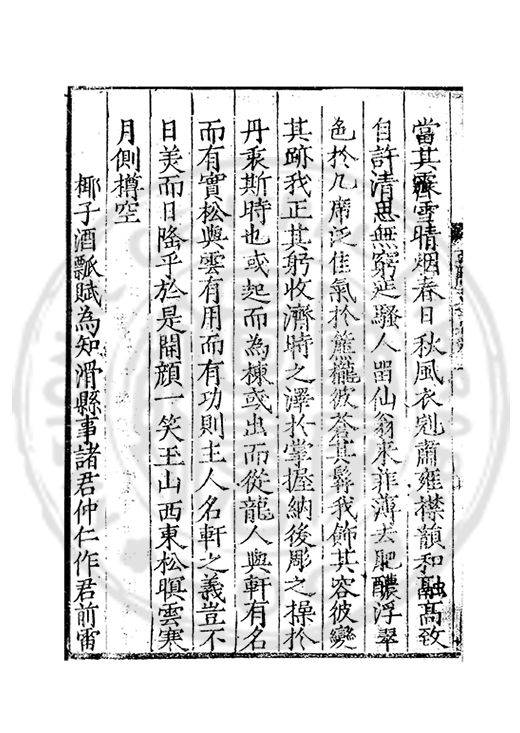 當其霽雪晴烟春日秋風衣冠肅雍襟韻和融高致
自許清思無窮延騷人畱仙翁来菲薄去肥醲浮翠
色於几席泛佳氣於簾櫳彼蒼其髯我飾其容彼變
其跡我正其躬收濟時之澤於掌握納後彫之操於
丹衷斯時也或起而為棟或出而從龍人與軒有名
而有實松與雲有用而有功則主人名軒之義豈不
日美而日隆乎於是開顔一笑玉山西東松暝雲寒
月側樽空
椰子酒瓢賦為知滑縣事諸君仲仁作君前雷